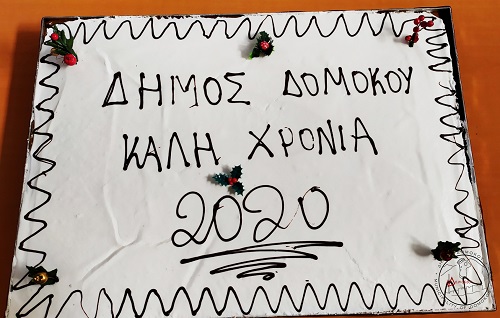 ΔΗΜΟΣ ΔΟΜΟΚΟΥ
ΚΑΛΗ ΧΡΟΝΙΑ
2020